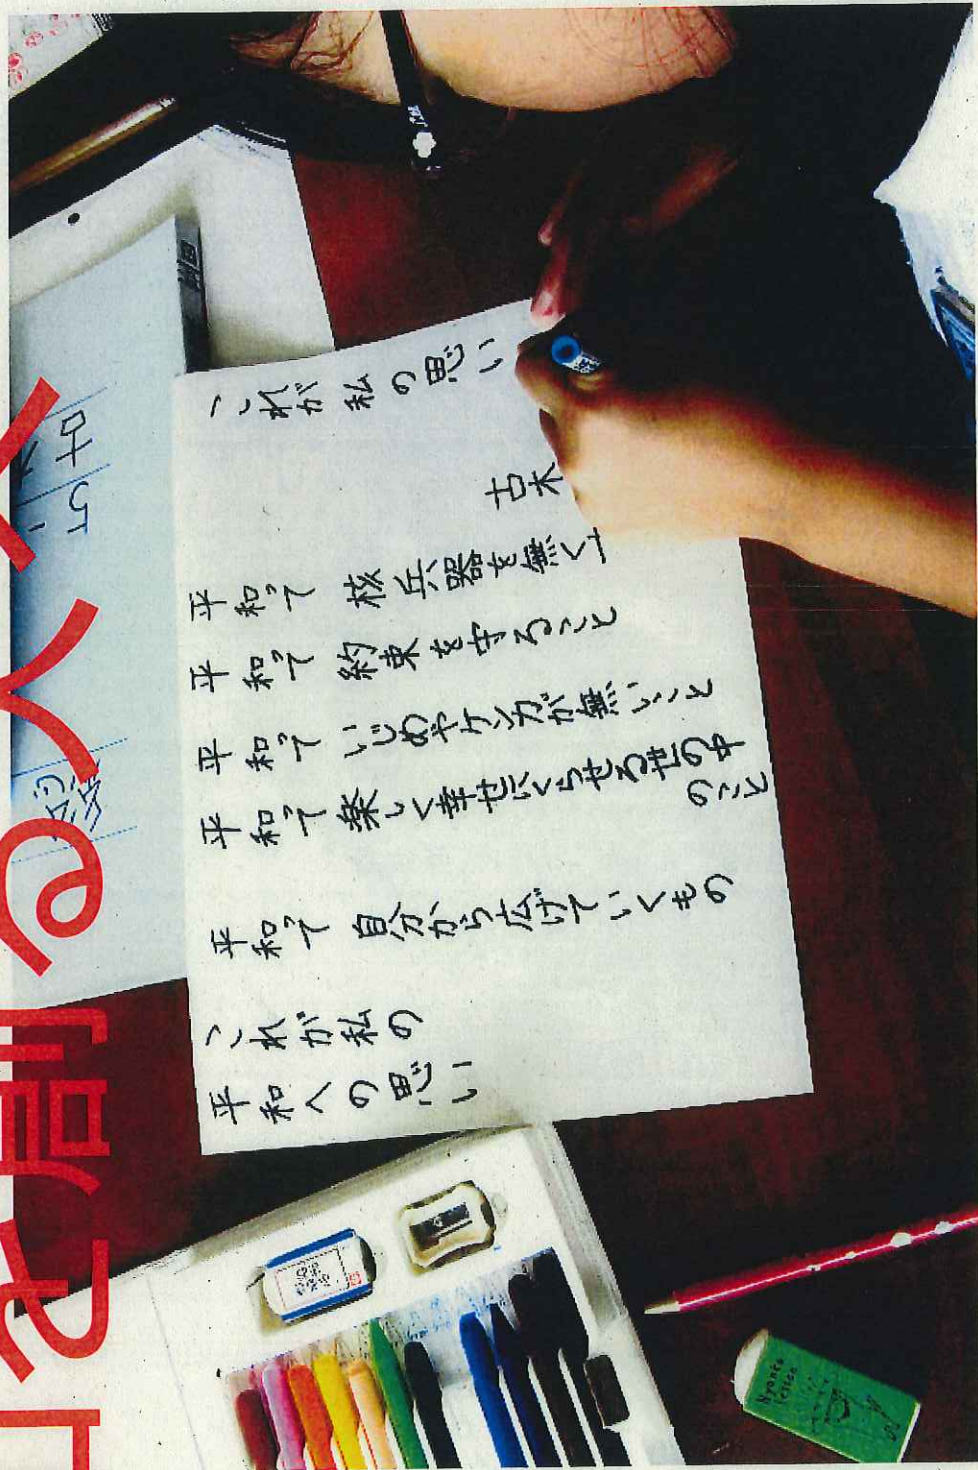 これが私の思い
古木
平和って 核兵器を無く
平和って 約束を守ること
平和って いじめやケンカが無いこと
平和って 楽しく幸せにくらせる世の中
のこと
平和って 自分から広げていくもの
これが私の
平和への思い